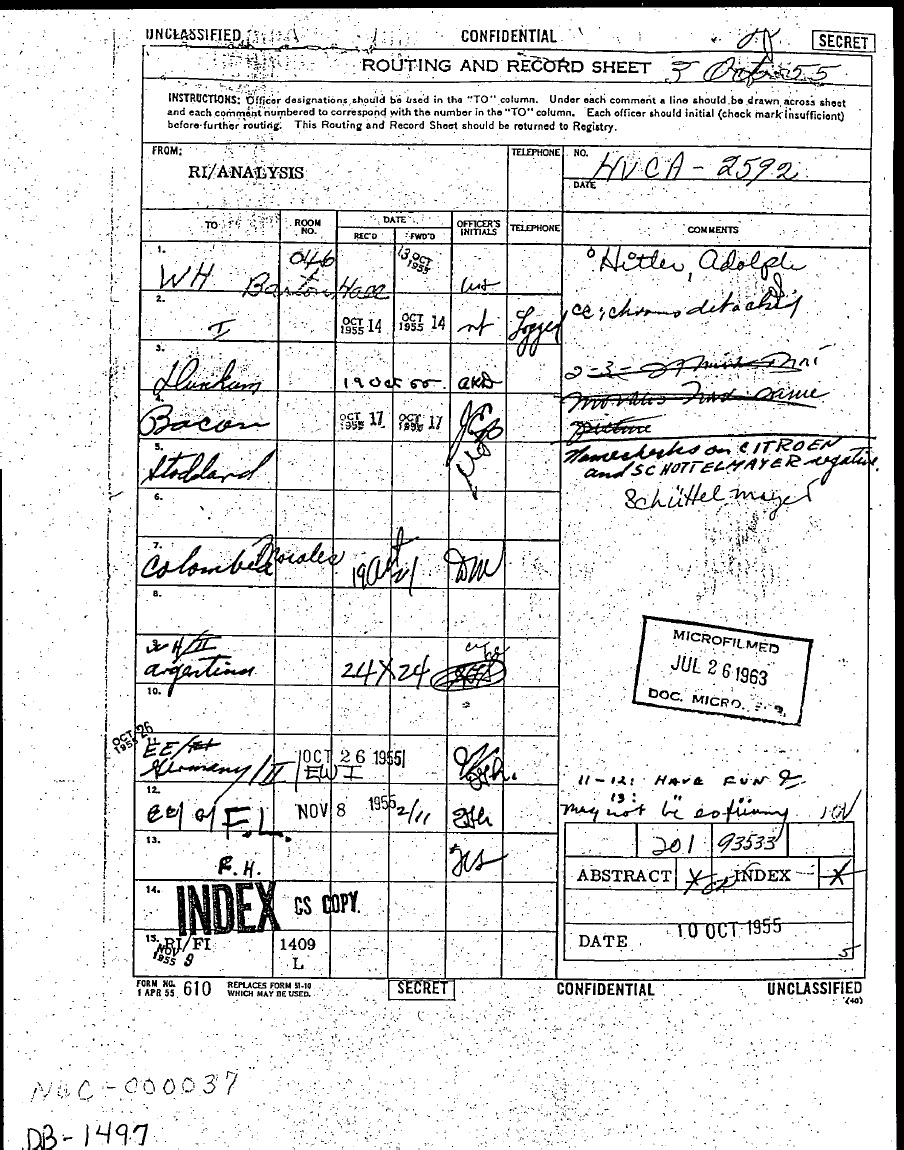 UNCLASSIFIED CONFIDENTIAL SECRET
ROUTING AND RECORD SHEET
INSTRUCTIONS: Officer designations should be used in the "TO" column. Under each comment a line should be drawn across sheet
and each comment numbered to correspond with the number in the "TO" column. Each officer should initial (check mark insufficient)
before further routing. This Routing and Record Sheet should be returned to Registry.
FROM:
RI/ANALYSIS
TELEPHONE
NO.
HVCA-2592
DATE
TO
ROOM NO.
DATE
REC'D
FWD'D
OFFICER'S INITIALS
TELEPHONE
COMMENTS
1.
WH
046
Barton Hall
13 OCT 1955
Hitler, Adolph
2.
I
OCT 14 1955
OCT 14 1955
Logged
cc: chronos detached
3.
Dunham
19 Oct 55
4.
Bacon
OCT 17 1955
OCT 17 1955
picture
5.
Stoddard
Namechecks on CITROEN
and SCHOTTELMAYER negative
Schüttelmayer
6.
7.
Colombia
Morales
DM
8.
Argentina
24 X 24
10.
MICROFILMED
JUL 26 1963
DOC. MICRO. SER.
OCT 26 1955
EE/
Germany/II
OCT 26 1955
11-12: HAVE FUN
12.
F.L.
NOV 8 1955
2/11
13:
may not be so funny
13.
R.H.
201 93533
ABSTRACT X INDEX X
DATE 10 OCT 1955
5
14.
INDEX CS COPY
15.
RI/FI
NOV 9 1955
1409
L
FORM NO. 610
1 APR 55
REPLACES FORM 51-10
WHICH MAY BE USED.
SECRET CONFIDENTIAL UNCLASSIFIED
(40)
NWC-000037
DB-1497